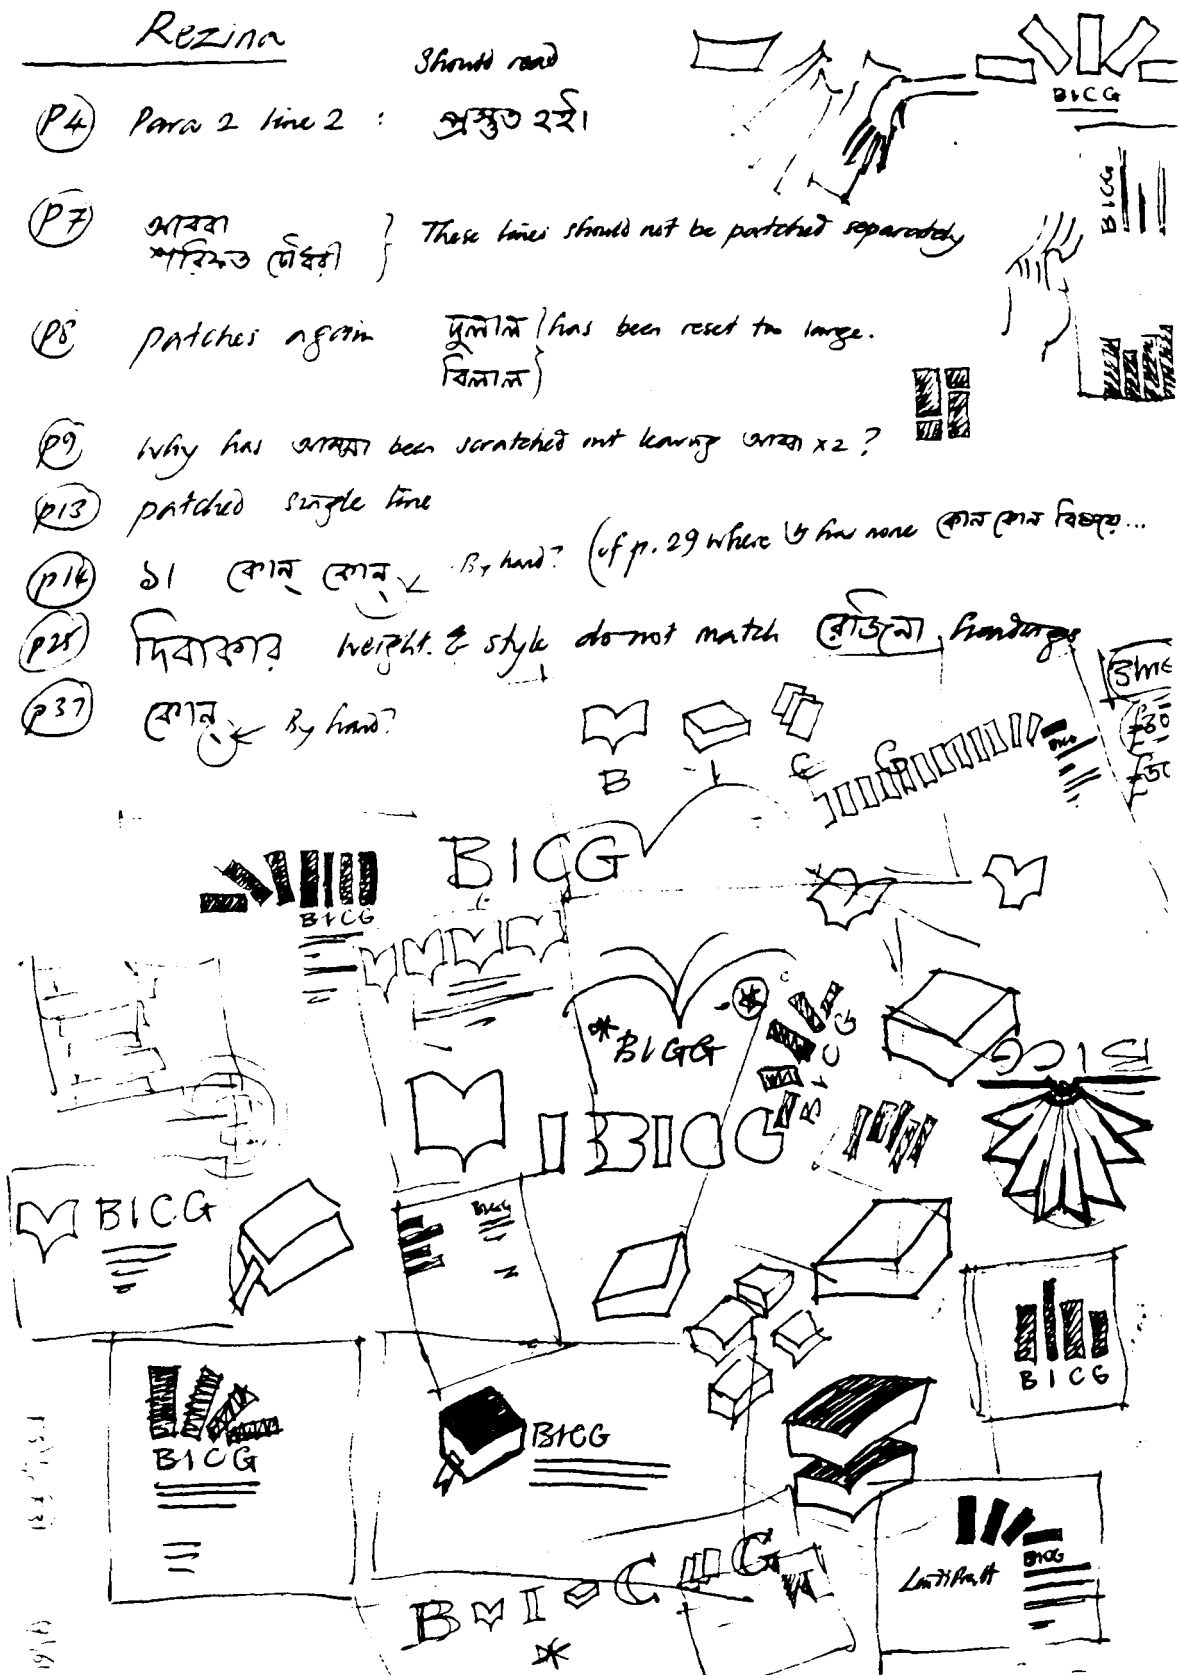 Rezina
Should read
P4 Para 2 line 2 : প্রস্তুত হই।
P7 আব্বা
শরিফত চৌধুরী } These lines should not be patched separately
P8 patches again দুলাল } has been reset too large.
বিলাল }
p9 Why has আম্মা been scratched out leaving আব্বা x2 ?
p13 patched single line
p14 ১। কোন্ কোন্ ← By hand? (cf p. 29 where it has none কোন কোন বিষয়ে...
p25 দিবাকার weight & style do not match রেজিনা headings
p37 কোন্ ← By hand?
BICG
BICG
B I C G
BICG
BICG
BICG
BICG
BICG
BICG
BICG
BICG
BICG
BICG
BICG
BICG
B I C G
BICG